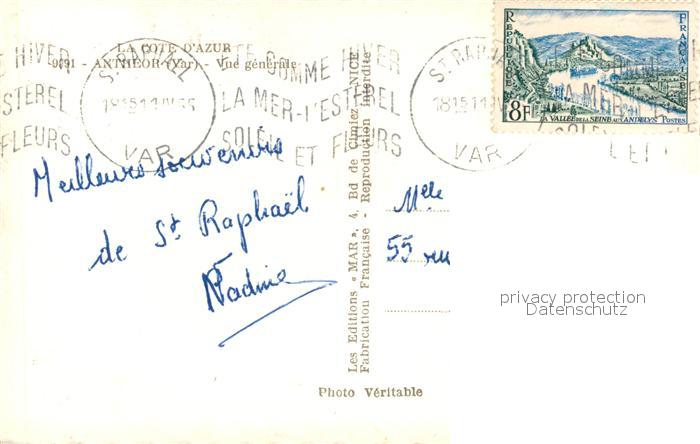 LA COTE D'AZUR
9491 - ANTHEOR (Var) - Vue générale
ST RAPHAEL
18H15 11 IV 55
VAR
ETE COMME HIVER
LA MER-L'ESTEREL
SOLEIL ET FLEURS
HIVER
ESTEREL
FLEURS
REPUBLIQUE FRANÇAISE
8F
LA VALLÉE DE LA SEINE AUX ANDELYS POSTES
Meilleurs souvenirs
de St Raphaël
Nadine
Les Editions « MAR », 4, Bd de Cimiez, NICE
Fabrication Française - Reproduction Interdite
Melle
55 rue
privacy protection
Datenschutz
Photo Véritable